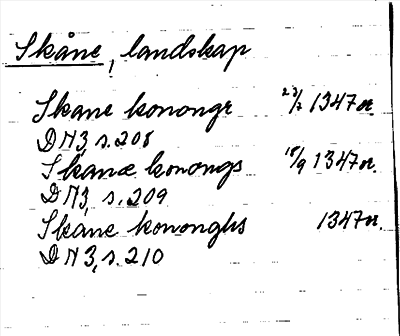 Skåne, landskap
Skane konongr 23/7 1347 or.
DN3 s. 208
Skanæ konongs 18/9 1347 or.
DN3, s. 209
Skane kononghs 1347 or.
DN3, s. 210